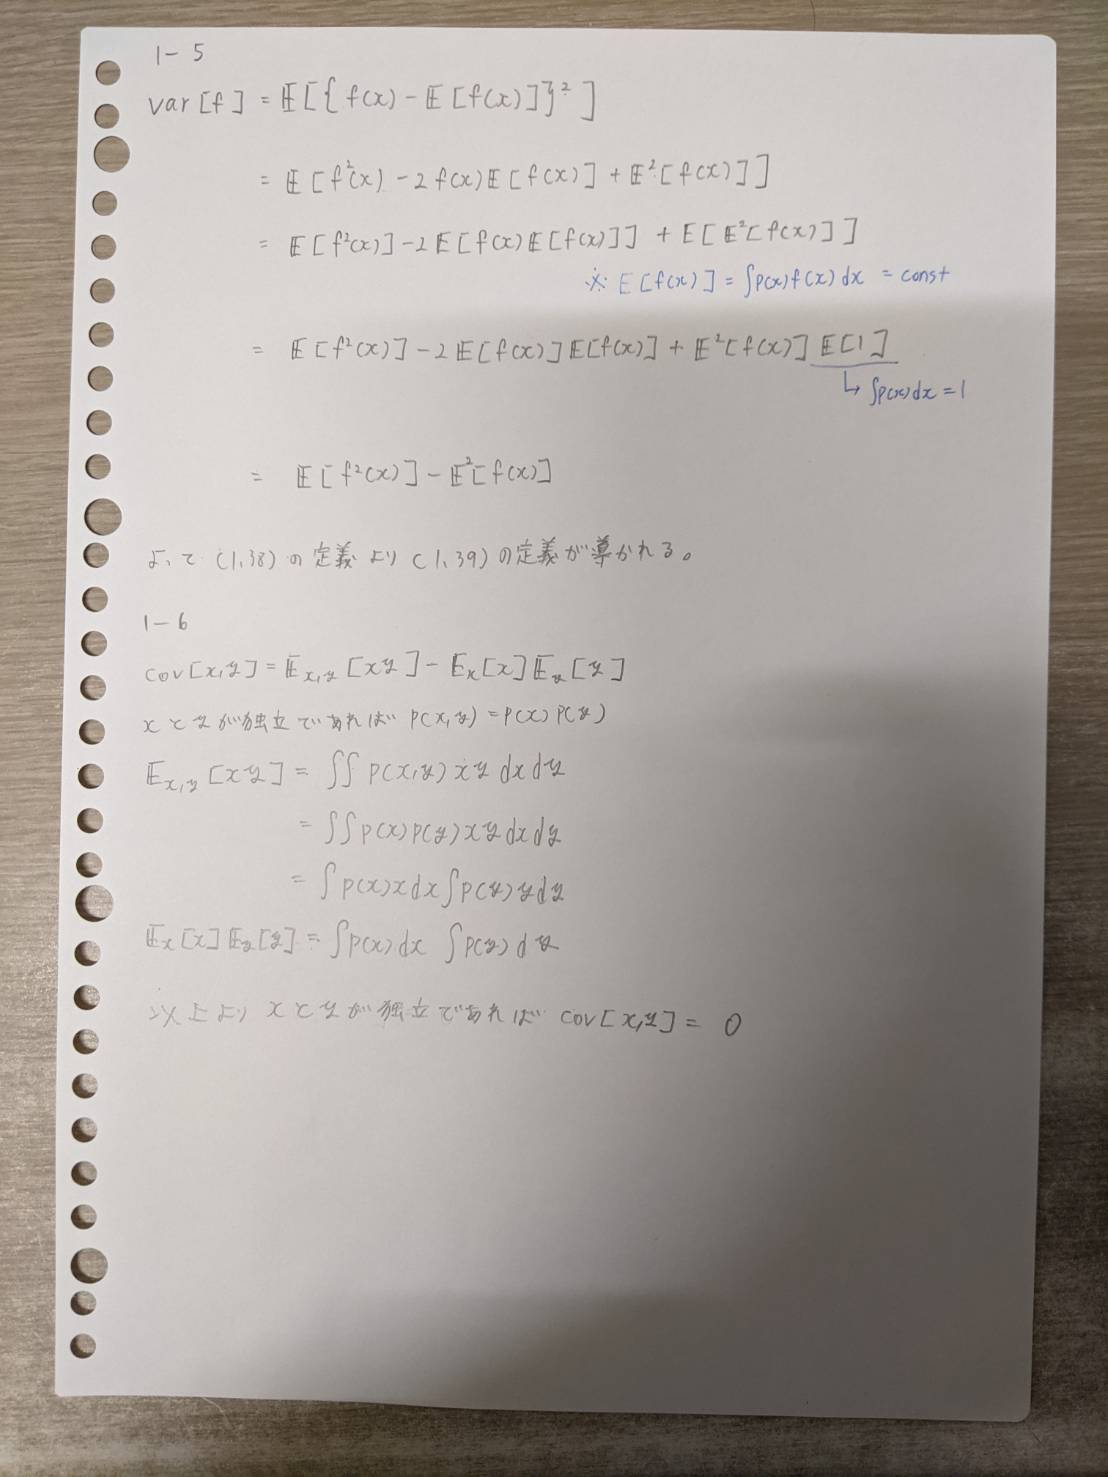 1-5
var[f] = 𝔼[{f(x) - 𝔼[f(x)]}²]
= 𝔼[f²(x) - 2f(x)𝔼[f(x)] + 𝔼²[f(x)]]
= 𝔼[f²(x)] - 2𝔼[f(x)𝔼[f(x)]] + 𝔼[𝔼²[f(x)]]
※ 𝔼[f(x)] = ∫p(x)f(x)dx = const
= 𝔼[f²(x)] - 2𝔼[f(x)]𝔼[f(x)] + 𝔼²[f(x)]𝔼[1]
↳ ∫p(x)dx = 1
= 𝔼[f²(x)] - 𝔼²[f(x)]
よって (1.38) の定義より (1.39) の定義が導かれる。
1-6
cov[x,y] = 𝔼x,y[xy] - 𝔼x[x]𝔼y[y]
xとyが独立であれば p(x,y) = p(x)p(y)
𝔼x,y[xy] = ∫∫p(x,y)xy dxdy
= ∫∫p(x)p(y)xy dxdy
= ∫p(x)xdx∫p(y)ydy
𝔼x[x]𝔼y[y] = ∫p(x)dx ∫p(y)dy
以上より xとyが独立であれば cov[x,y] = 0